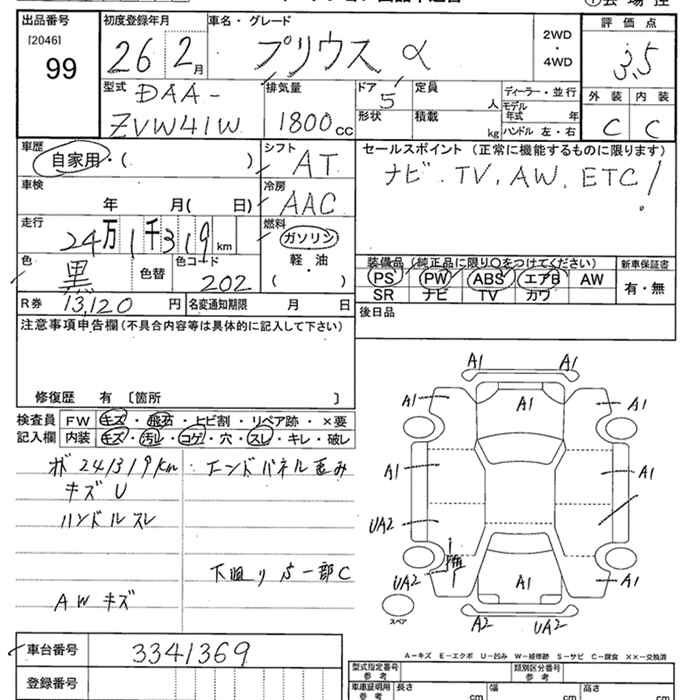 出品番号 初度登録年月 車名・グレード 評価点
[2046]
99
26 2月
プリウス α
2WD
・
4WD
3.5
型式 排気量 ドア 定員 ディーラー・並行
DAA-
ZVW41W
1800cc
5
人
モデル年式 年
形状 積載 kg
ハンドル 左・右
外装 内装
C C
車歴 シフト セールスポイント (正常に機能するものに限ります)
自家用・( )
AT
ナビ. TV. AW. ETC!
車検 冷房
年 月( 日)
AAC
走行 燃料
24万1千319km
ガソリン
軽・油
( )
色 色替 色コード
黒
202
装備品 (純正品に限り○をつけてください) 新車保証書
PS PW ABS エアB AW 有・無
SR ナビ TV カワ
R券 13,120円 名変通知期限 月 日
後日品
注意事項申告欄(不具合内容等は具体的に記入して下さい)
修復歴 有 〔箇所 〕
検査員 FW キズ・飛石・ヒビ割・リペア跡・×要
記入欄 内装 キズ・汚レ・コゲ・穴・スレ・キレ・破レ
241319km エンドパネル歪み
キズ U
ハンドルスレ
下廻り 一部C
AW キズ
A1 A1
A1 A1 A1
A1 A1
UA2
UA2 A1 A1
A2 UA2
スペア
A-キズ E-エクボ U-凹み W-補修跡 S-サビ C-腐食 ××-交換済
車台番号 3341369
登録番号
型式指定番号 参考 類別区分番号 参考
車庫証明用 参考 長さ cm 幅 cm 高さ cm